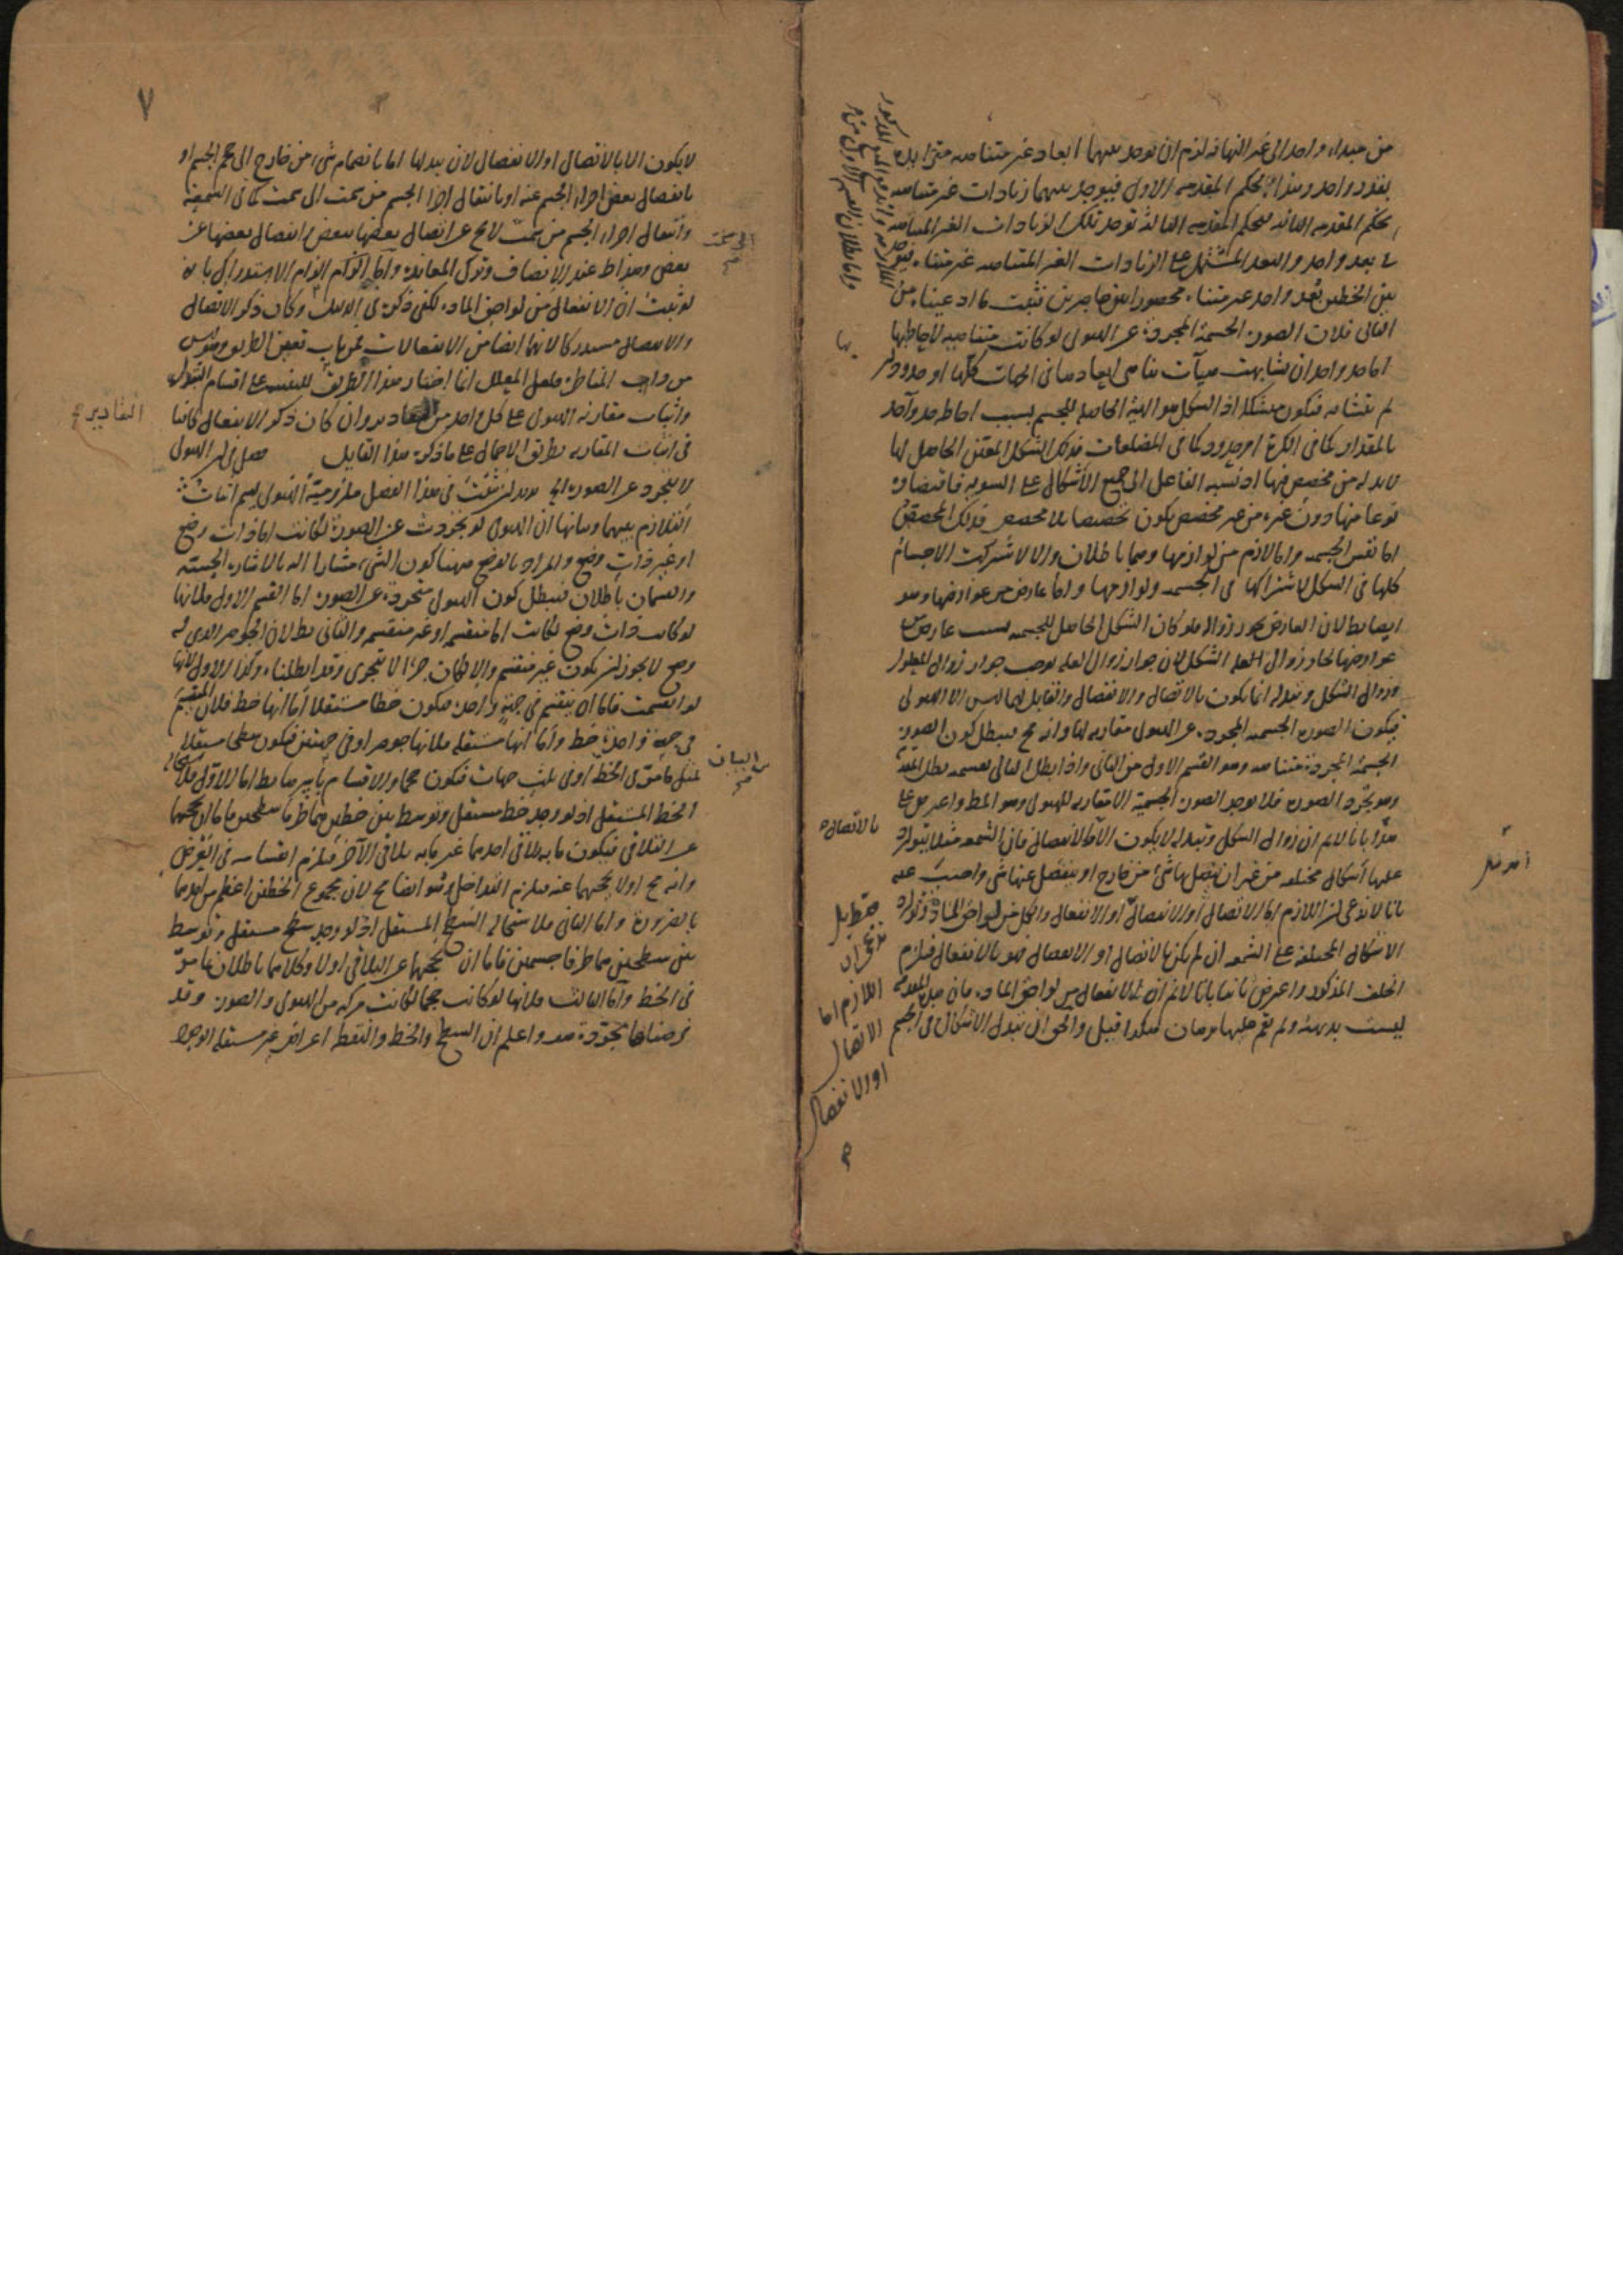 من مبداء واحد الى غير النهاية لزم ان يوجد بينهما ابعاد غير متناهية متزايدة
بقدر واحد وهذا بحكم المقدمة الاولى فيوجد بينهما زيادات غير متناهية
بحكم المقدمة الثانية فبحكم المقدمة الثالثة توجد تلك الزيادات الغير المتناهية
في بعد واحد والبعد المشتمل على الزيادات الغير المتناهية غير متناه فيوجد
بين الخطين بعد واحد غير متناه محصورا بين حاصرين فثبت ما ادعيناه من
الثاني فلان الصورة الجسمية المجردة عن الهيولى لو كانت متناهية لاحاط بها
اما حد واحد ان تشابهت هيآت تناهي ابعادها في الجهات كلها او حدود ان
لم يتشابه فتكون متشكلة اذ الشكل هو الهيئة الحاصلة للجسم بسبب احاطة حد واحد
بالمقدار كما في الكرة او حدود كما في المضلعات فذلك الشكل المعين الحاصل لها
لا بد له من مخصص فيها اذ نسبة الفاعل الى جميع الاشكال على السوية فاقتضاؤه
نوعا منها دون غيره من غير مخصص يكون تخصيصا بلا مخصص فذلك المخصص
اما نفس الجسمية واما لازم من لوازمها وهما باطلان والا لاشتركت الاجسام
كلها في الشكل لاشتراكها في الجسمية ولوازمها واما عارض من عوارضها وهو
ايضا بط لان العارض يجوز زواله فلو كان الشكل الحاصل للجسمية بسبب عارض من
عوارضها لجاز زوال الشكل لان جواز زوال العلة يوجب جواز زوال المعلول
وزوال الشكل وتبدله انما يكون بالاتصال والانفصال والقابل لهما ليس الا الهيولى
فيكون الصورة الجسمية المجردة عن الهيولى مقارنة لها وانه مح فيبطل كون الصورة
الجسمية المجردة متناهية وهو القسم الاول من الثاني واذا بطل التالي بقسميه بطل المقدم
وهو تجرد الصورة فلا توجد الصورة الجسمية الا مقارنة للهيولى وهو المط واعترض على
هذا بانا لانم ان زوال الشكل وتبدله لا يكون الا بالانفصال فان الشمعة مثلا يتوارد
عليها اشكال مختلفة من غير ان يتصل بها شئ من خارج او ينفصل عنها شئ واجيب عنه
بانا لا ندعي ان اللازم اما الاتصال او الانفصال او الانفعال والكل من لواحق المادة وتوارد
الاشكال المختلفة على الشمعة ان لم يكن بالاتصال او الانفصال فهو بالانفعال فيلزم
الخلف المذكور واعترض ثانيا بانا لانم ان الانفعال من لواحق المادة فان هذه المقدمة
ليست بديهية ولم يقم عليها برهان هكذا قيل والحق ان تبدل الاشكال في الجسم
بها
بالاتصال
فقط بل
ندعي ان
اللازم اما
الاتصال
او الانفصال
٧
لا يكون الا بالاتصال او الانفصال لان تبدلها اما بانضمام شئ من خارج الى حجم الجسم او
بانفصال بعض اجزاء الجسم عنه او بانتقال اجزاء الجسم من سمت الى سمت كما في الشمعة
وانتقال اجزاء الجسم من سمت لا يخ عن اتصال بعضها ببعض وانفصال بعضها عن
بعض وهذا ظ عند الانصاف وترك المعاندة
لو ثبت ان الانفعال من لواحق المادة لكفى ذكره في الدليل وكان ذكر الاتصال
والانفصال مستدركا لانهما ايضا من الانفعالات
من داب المناظر فلعل المعلل انما اختار هذا الطريق للتنبيه على اقسام القبول
واثبات مقارنة الهيولى على كل واحد من التقادير وان كان ذكر الانفعال كافيا
في اثبات المقارنة بطريق الاجمال على ما ذكره هذا القايل فصل في ان الهيولى
لا يتجرد عن الصورة الخ يريد ان يثبت في هذا الفصل ملزومية الهيولى ليتم اثبات
التلازم بينهما وبيانها ان الهيولى لو تجردت عن الصورة لكانت اما ذات وضع
او غير ذات وضع والمراد بالوضع ههنا كون الشئ مشارا اليه بالاشارة الحسية
والقسمان باطلان فيبطل كون الهيولى متجردة عن الصورة اما القسم الاول فلانها
لو كانت ذات وضع لكانت اما منقسمة او غير منقسمة والثاني بط لان الجوهر الذي له
وضع لا يجوز ان يكون غير منقسم والا لكان جزءا لا يتجزى وقد ابطلناه وكذا الاول لانها
لو انقسمت فاما ان ينقسم في جهة واحدة فيكون خطا مستقلا اما انها خط فلان المنقسم
في جهة واحدة خط واما انها مستقلة فلانها جوهر او في جهتين فيكون سطحا مستقلا
لمثل ما مر في الخط او في ثلث جهات فيكون جسما والاقسام باسرها بط اما الاول فلاستحالة
الخط المستقل اذ لو وجد خط مستقل وتوسط بين خطين هما طرفا سطحين فاما ان يحجبهما
عن التلاقي فيكون ما به يلاقي احدهما غير ما به يلاقي الآخر فيلزم انقسامه في العرض
وانه مح او لا يحجبهما عنه فيلزم التداخل وهو ايضا مح لان مجموع الخطين اعظم من احدهما
بالضرورة واما الثاني فلاستحالة السطح المستقل اذ لو وجد سطح مستقل وتوسط
بين سطحين هما طرفا جسمين فاما ان يحجبهما عن التلاقي او لا وكلاهما باطلان لما مر
في الخط واما الثالث فلانها لو كانت جسما لكانت مركبة من الهيولى والصورة وقد
فرضناها مجردة هف واعلم ان السطح والخط والنقطة اعراض غير مستقلة الوجود
الى سمت
التقادير